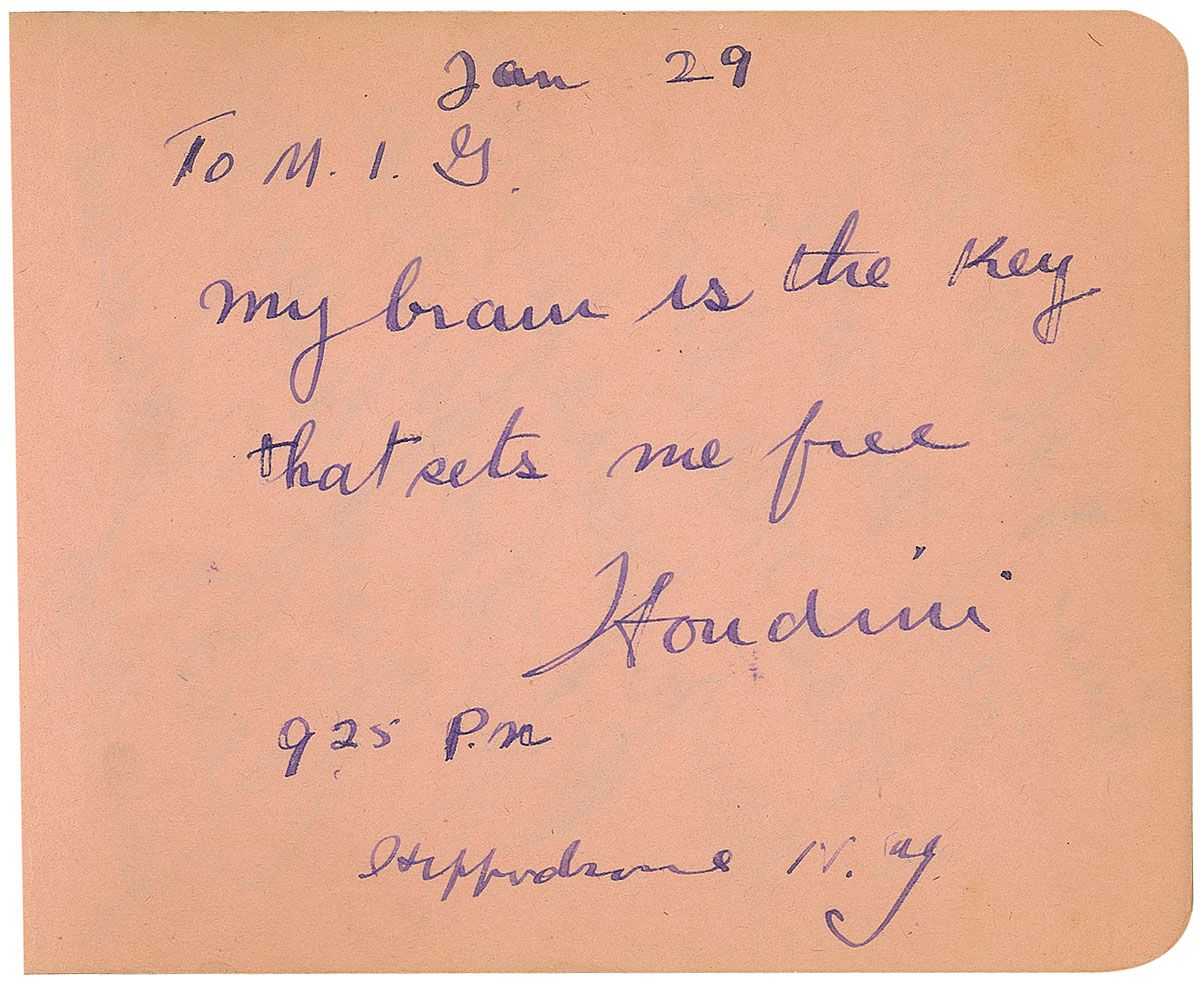 Jan 29
To M. I. G.
My brain is the key
that sets me free
Houdini
925 P.M
Hippodrome N. Y.